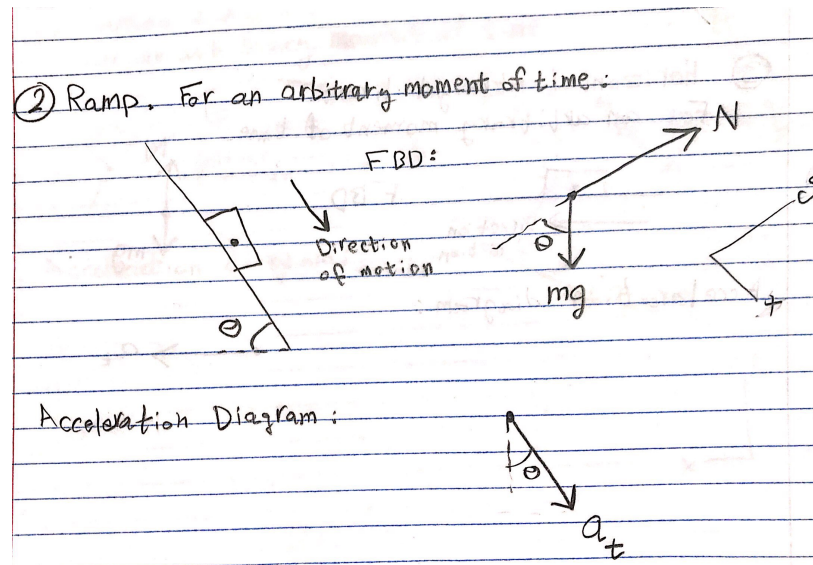 ② Ramp. For an arbitrary moment of time:
FBD:
N
Direction
of motion
θ
mg
c
t
θ
Acceleration Diagram:
θ
a_t